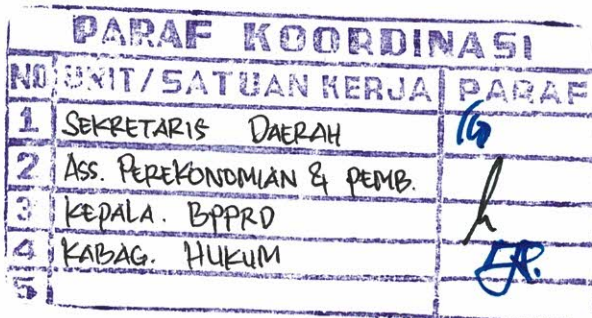 PARAF KOORDINASI
NO UNIT/SATUAN KERJA PARAF
1 SEKRETARIS DAERAH
2 ASS. PEREKONOMIAN & PEMB.
3 KEPALA. BPPRD
4 KABAG. HUKUM
5